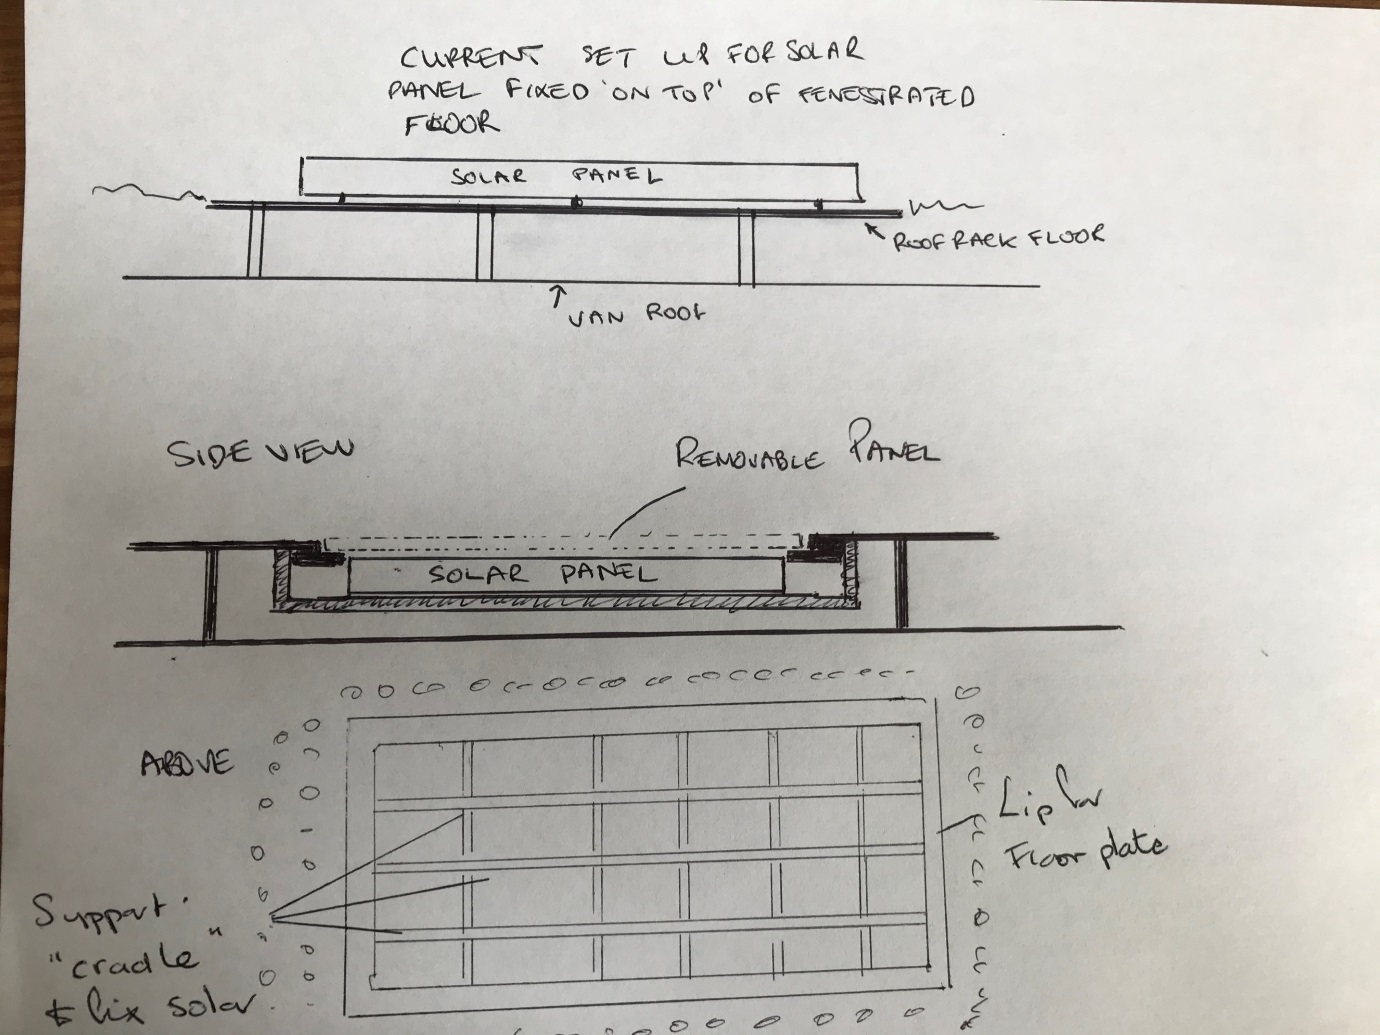 CURRENT SET UP FOR SOLAR
PANEL FIXED 'ON TOP' OF FENESTRATED
FLOOR
SOLAR PANEL
ROOFRACK FLOOR
VAN ROOF
SIDE VIEW
REMOVABLE PANEL
SOLAR PANEL
ABOVE
Lip for
Floor plate
Support
"cradle"
& fix solar